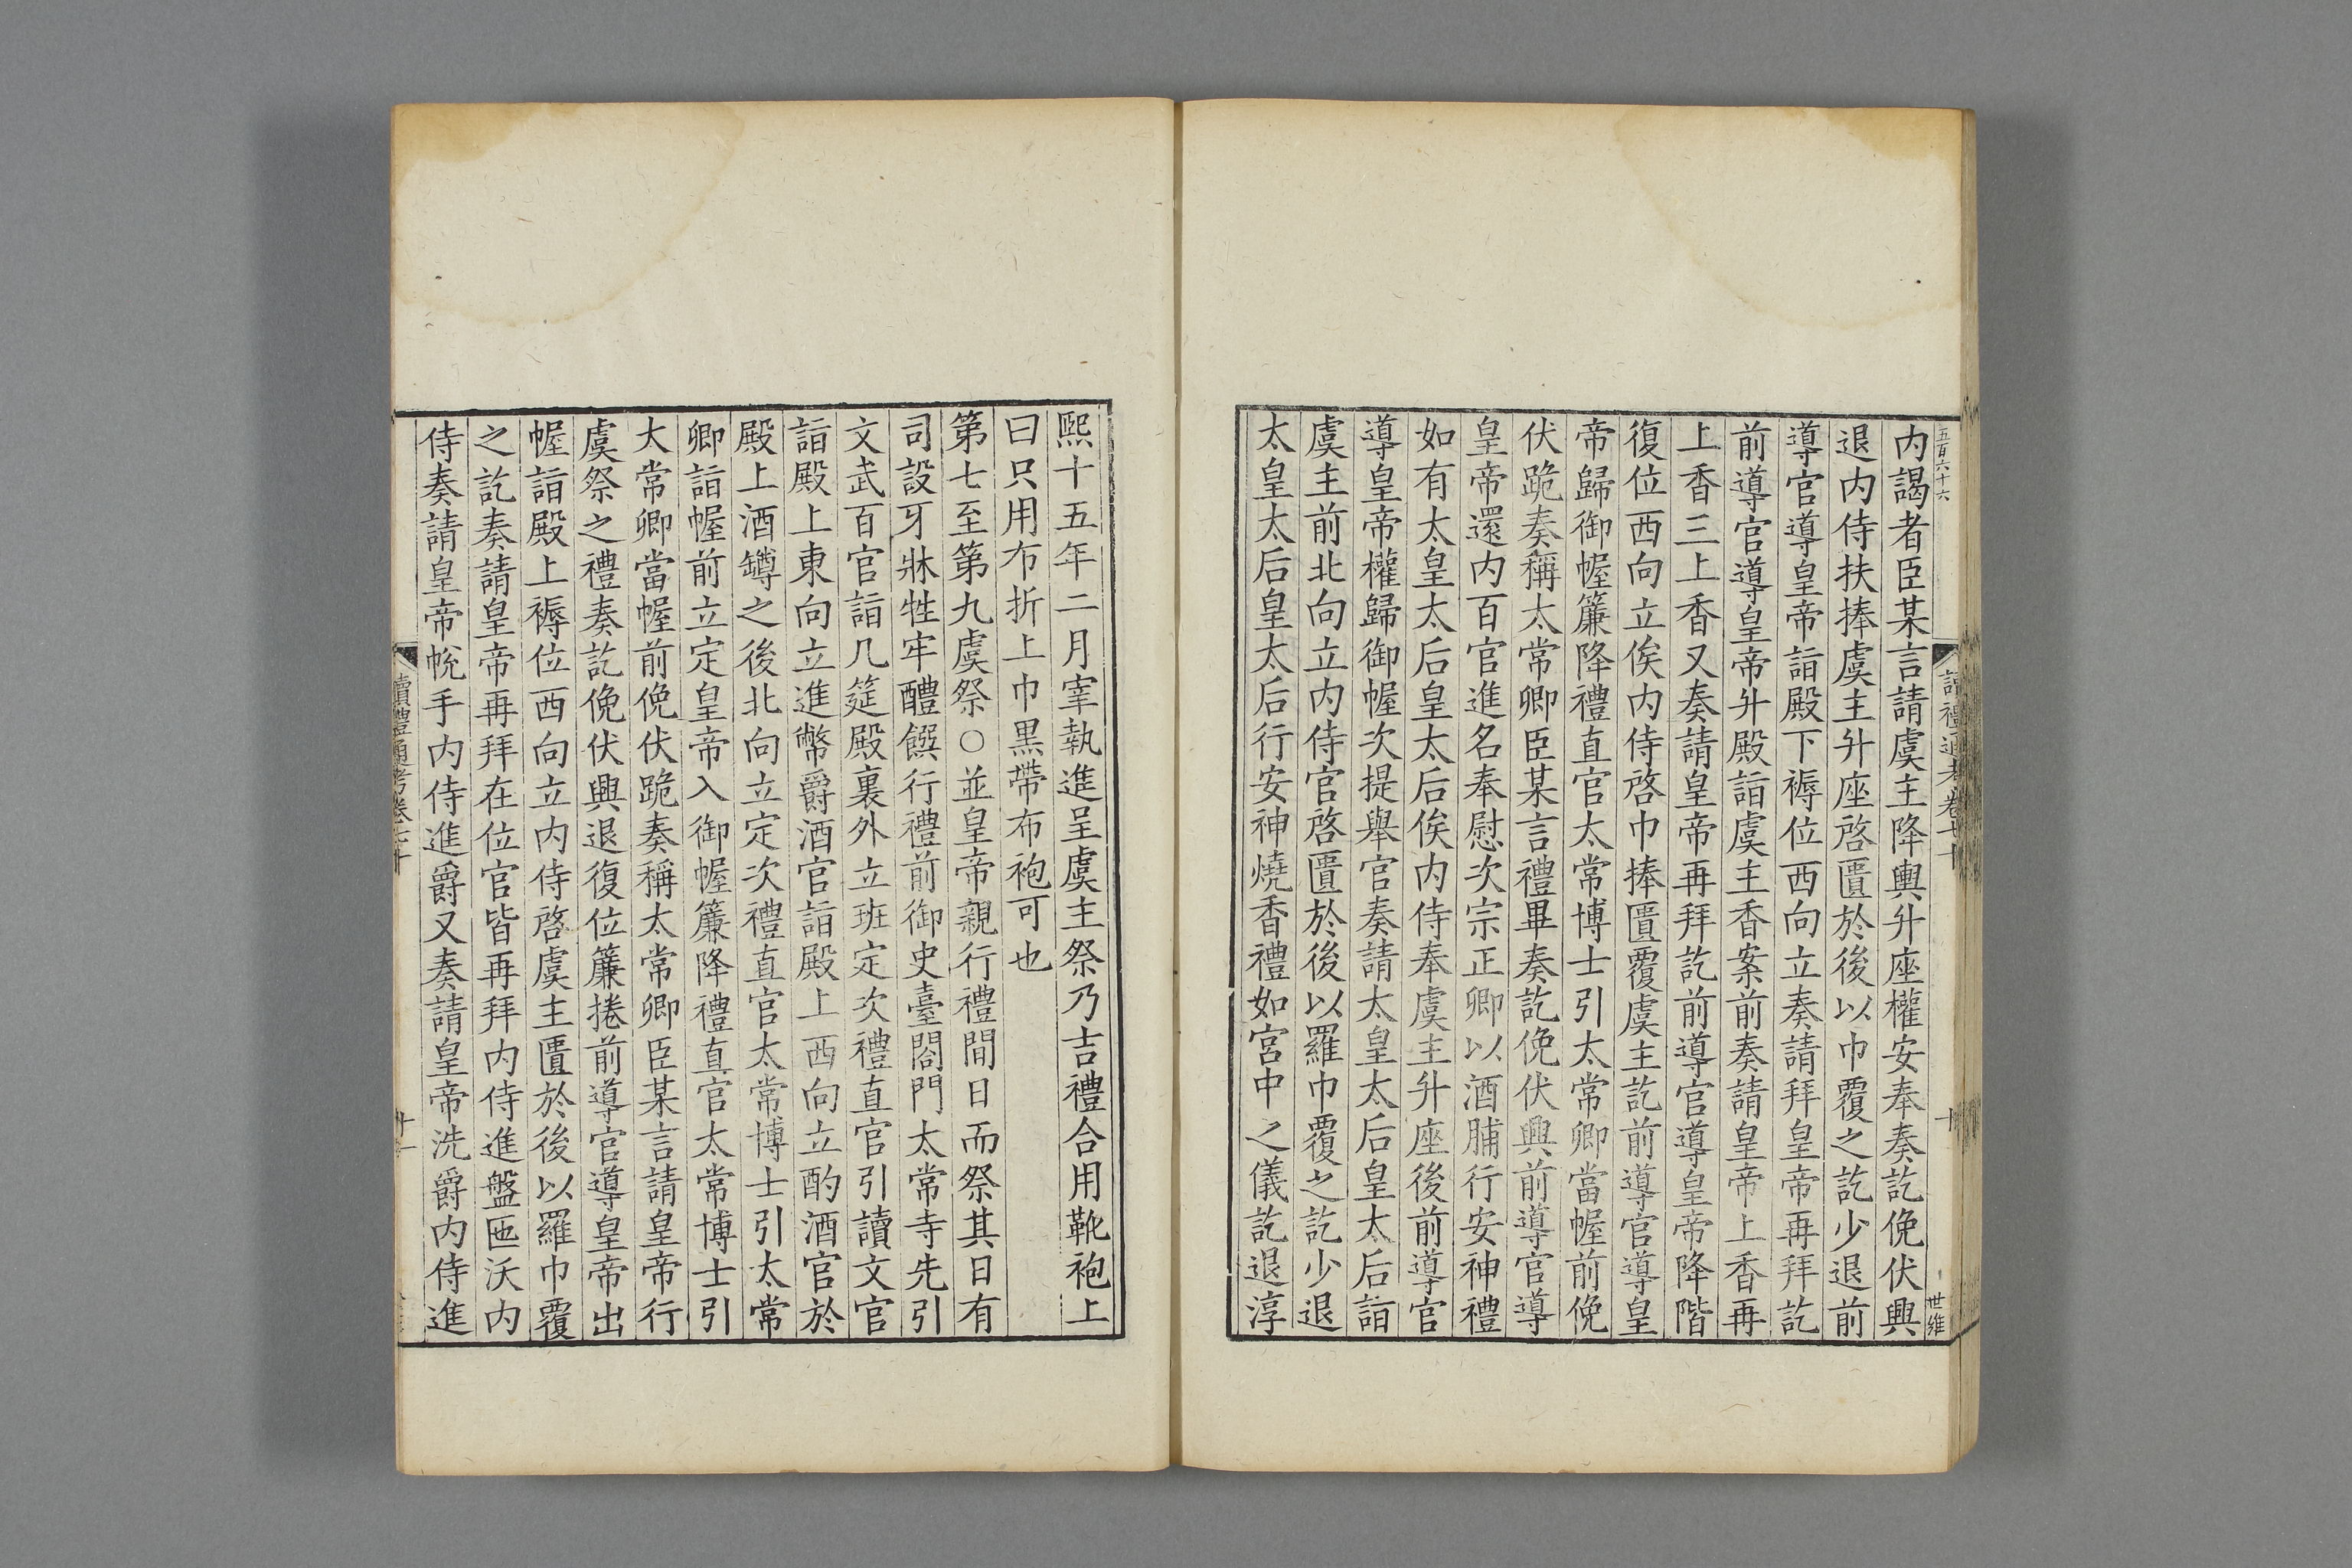 五百六十六
內謁者臣某言請虞主降輿升座權安奉奏訖俛伏興
退內侍扶捧虞主升座啓匱於後以巾覆之訖少退前
導官導皇帝詣殿下褥位西向立奏請拜皇帝再拜訖
前導官導皇帝升殿詣虞主香案前奏請皇帝上香再
上香三上香又奏請皇帝再拜訖前導官導皇帝降階
復位西向立俟內侍啓巾捧匱覆虞主訖前導官導皇
帝歸御幄簾降禮直官太常博士引太常卿當幄前俛
伏跪奏稱太常卿臣某言禮畢奏訖俛伏興前導官導
皇帝還內百官進名奉慰次宗正卿以酒脯行安神禮
如有太皇太后皇太后俟內侍奉虞主升座後前導官
導皇帝權歸御幄次提舉官奏請太皇太后皇太后詣
虞主前北向立內侍官啓匱於後以羅巾覆之訖少退
太皇太后皇太后行安神燒香禮如宮中之儀訖退淳
讀禮通考卷七十
十
世維
熙十五年二月宰執進呈虞主祭乃吉禮合用靴袍上
曰只用布折上巾黑帶布袍可也
第七至第九虞祭○並皇帝親行禮間日而祭其日有
司設牙牀牲牢醴饌行禮前御史臺閤門太常寺先引
文武百官詣几筵殿裏外立班定次禮直官引讀文官
詣殿上東向立進幣爵酒官詣殿上西向立酌酒官於
殿上酒罇之後北向立定次禮直官太常博士引太常
卿詣幄前立定皇帝入御幄簾降禮直官太常博士引
大常卿當幄前俛伏跪奏稱太常卿臣某言請皇帝行
虞祭之禮奏訖俛伏興退復位簾捲前導官導皇帝出
幄詣殿上褥位西向立內侍啓虞主匱於後以羅巾覆
之訖奏請皇帝再拜在位官皆再拜內侍進盤匜沃內
侍奏請皇帝帨手內侍進爵又奏請皇帝洗爵內侍進
讀禮通考卷七十
十一